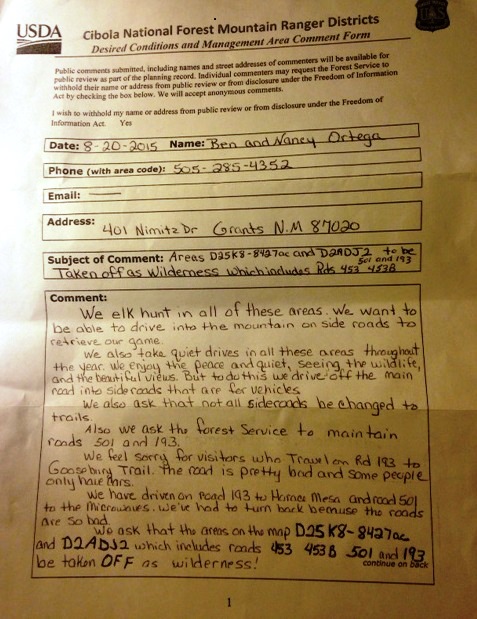 USDA
Cibola National Forest Mountain Ranger Districts
Desired Conditions and Management Area Comment Form
Public comments submitted, including names and street addresses of commenters will be available for
public review as part of the planning record. Individual commenters may request the Forest Service to
withhold their name or address from public review or from disclosure under the Freedom of Information
Act by checking the box below. We will accept anonymous comments.
I wish to withhold my name or address from public review or from disclosure under the Freedom of
Information Act. Yes
Date: 8-20-2015 Name: Ben and Nancy Ortega
Phone (with area code): 505-285-4352
Email: ——
Address: 401 Nimitz Dr Grants N.M 87020
Subject of Comment: Areas D25K8-8427ac and D2ADJ2 to be
501 and 193
Taken off as Wilderness which includes Rds 453 453B
Comment:
We elk hunt in all of these areas. We want to
be able to drive into the mountain on side roads to
retrieve our game.
We also take quiet drives in all these areas throughout
the year. We enjoy the peace and quiet, seeing the wildlife,
and the beautiful views. But to do this we drive off the main
road into side roads that are for vehicles.
We also ask that not all sideroads be changed to
trails.
Also we ask the forest Service to maintain
roads 501 and 193.
We feel sorry for visitors who Travel on Rd 193 to
Gooseberry Trail. The road is pretty bad and some people
only have cars.
We have driven on Road 193 to Horace Mesa and road 501
to the Microwaves. We've had to turn back because the roads
are so bad.
We ask that the areas on the map D25K8-8427ac
and D2ADJ2 which includes roads 453 453B 501 and 193
be taken OFF as wilderness!
continue on back
1